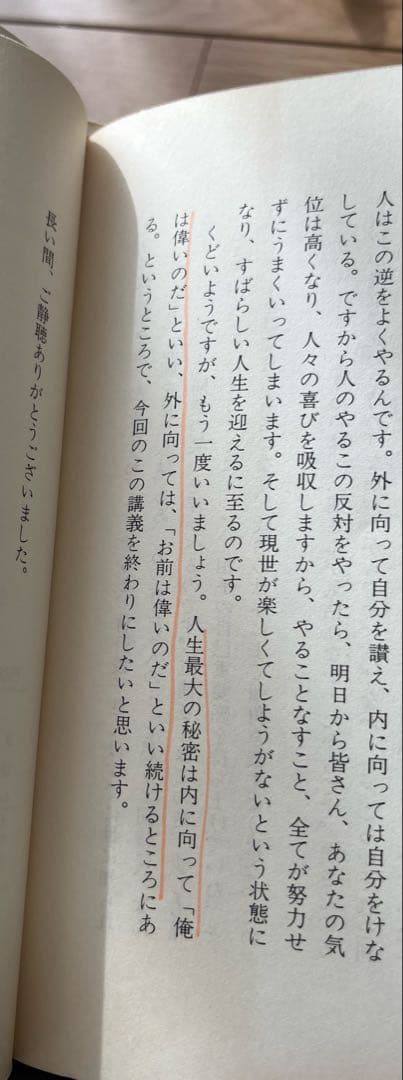 人はこの逆をよくやるんです。外に向って自分を讃え、内に向っては自分をけな
している。ですから人のやるこの反対をやったら、明日から皆さん、あなたの気
位は高くなり、人々の喜びを吸収しますから、やることなすこと、全てが努力せ
ずにうまくいってしまいます。そして現世が楽しくてしようがないという状態に
なり、すばらしい人生を迎えるに至るのです。
くどいようですが、もう一度いいましょう。人生最大の秘密は内に向って「俺
は偉いのだ」といい、外に向っては、「お前は偉いのだ」といい続けるところにあ
る。というところで、今回のこの講義を終わりにしたいと思います。
長い間、ご静聴ありがとうございました。